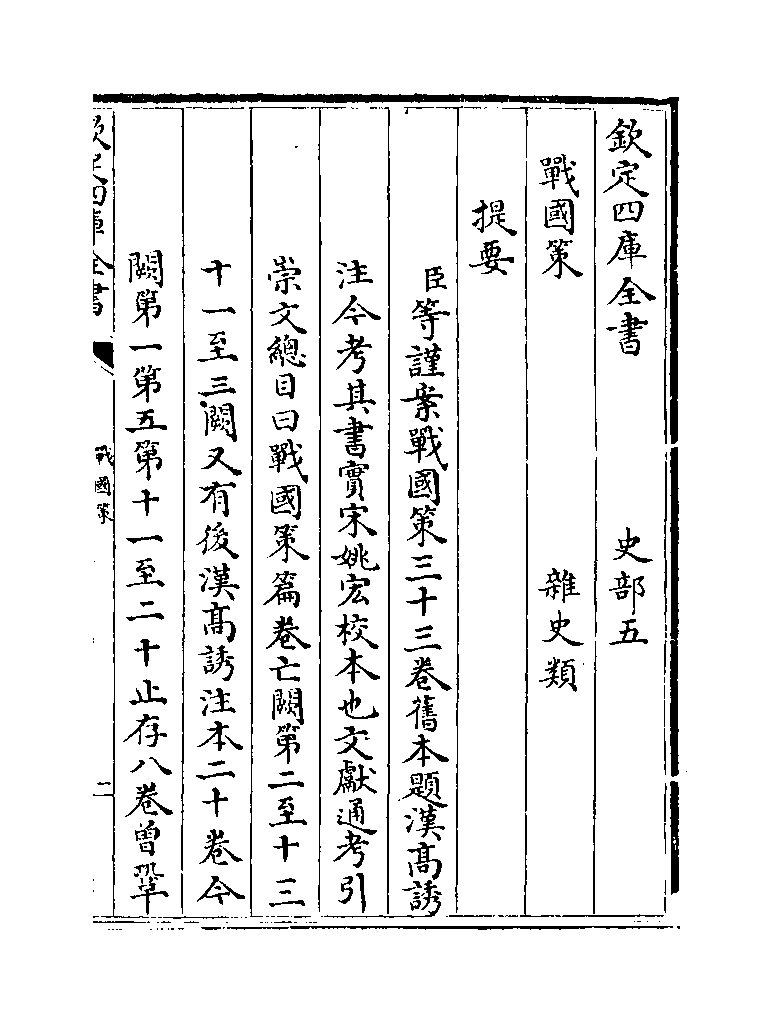 欽定四庫全書　史部五
戰國策　雜史類
提要
臣等謹案戰國策三十三卷舊本題漢高誘
注今考其書實宋姚宏校本也文獻通考引
崇文總目曰戰國策篇卷亡闕第二至十三
十一至三闕又有後漢高誘注本二十卷今
闕第一第五第十一至二十止存八卷曾鞏
欽定四庫全書　戰國策　一